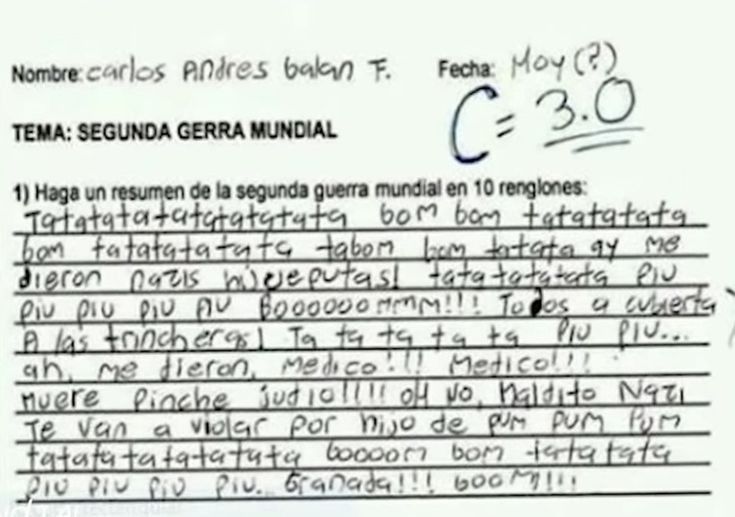 Nombre: carlos Andres Galan F. Fecha: Hoy (?)
C = 3.0
TEMA: SEGUNDA GERRA MUNDIAL
1) Haga un resumen de la segunda guerra mundial en 10 renglones:
Tatatatatatatatatata bom bom tatatatata
bom tatatatatata tabom bom tatata ay me
dieron nazis hijueputas! tatatatatata piu
piu piu piu piu Boooooommmm!!! Todos a cubierta
A las trincheras! Ta ta ta ta ta piu piu...
ah, me dieron, medico!!! Medico!!!
muere pinche judio!!!!! oH No, maldito Nazi
Te van a violar por hijo de pum pum Pum
tatatatatatatata boooom bom tatatata
piu piu piu piu... Granada!!! booM!!!